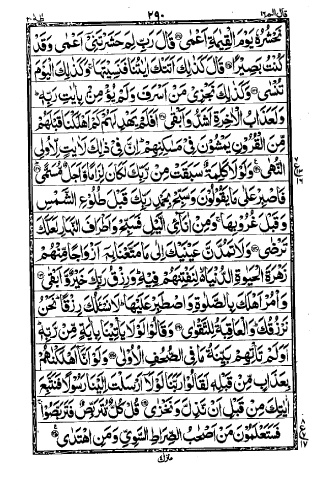 قال الم ١٦ ٢٩٠ طٰهٰ ٢٠
نَحْشُرُهٗ يَوْمَ الْقِيٰمَةِ اَعْمٰى قَالَ رَبِّ لِمَ حَشَرْتَنِيْٓ اَعْمٰى وَقَدْ
كُنْتُ بَصِيْرًا قَالَ كَذٰلِكَ اَتَتْكَ اٰيٰتُنَا فَنَسِيْتَهَا وَكَذٰلِكَ الْيَوْمَ
تُنْسٰى وَكَذٰلِكَ نَجْزِيْ مَنْ اَسْرَفَ وَلَمْ يُؤْمِنْ بِاٰيٰتِ رَبِّهٖ
وَلَعَذَابُ الْاٰخِرَةِ اَشَدُّ وَاَبْقٰى اَفَلَمْ يَهْدِ لَهُمْ كَمْ اَهْلَكْنَا قَبْلَهُمْ
مِّنَ الْقُرُوْنِ يَمْشُوْنَ فِيْ مَسٰكِنِهِمْ اِنَّ فِيْ ذٰلِكَ لَاٰيٰتٍ لِّاُولِي
النُّهٰى وَلَوْلَا كَلِمَةٌ سَبَقَتْ مِنْ رَّبِّكَ لَكَانَ لِزَامًا وَّاَجَلٌ مُّسَمًّى
فَاصْبِرْ عَلٰى مَا يَقُوْلُوْنَ وَسَبِّحْ بِحَمْدِ رَبِّكَ قَبْلَ طُلُوْعِ الشَّمْسِ
وَقَبْلَ غُرُوْبِهَا وَمِنْ اٰنَآئِ الَّيْلِ فَسَبِّحْ وَاَطْرَافَ النَّهَارِ لَعَلَّكَ
تَرْضٰى وَلَا تَمُدَّنَّ عَيْنَيْكَ اِلٰى مَا مَتَّعْنَا بِهٖٓ اَزْوَاجًا مِّنْهُمْ
زَهْرَةَ الْحَيٰوةِ الدُّنْيَا لِنَفْتِنَهُمْ فِيْهِ وَرِزْقُ رَبِّكَ خَيْرٌ وَّاَبْقٰى
وَاْمُرْ اَهْلَكَ بِالصَّلٰوةِ وَاصْطَبِرْ عَلَيْهَا لَا نَسْـَٔلُكَ رِزْقًا نَحْنُ
نَرْزُقُكَ وَالْعَاقِبَةُ لِلتَّقْوٰى وَقَالُوْا لَوْلَا يَاْتِيْنَا بِاٰيَةٍ مِّنْ رَّبِّهٖ
اَوَلَمْ تَاْتِهِمْ بَيِّنَةُ مَا فِي الصُّحُفِ الْاُوْلٰى وَلَوْ اَنَّآ اَهْلَكْنٰهُمْ
بِعَذَابٍ مِّنْ قَبْلِهٖ لَقَالُوْا رَبَّنَا لَوْلَآ اَرْسَلْتَ اِلَيْنَا رَسُوْلًا فَنَتَّبِعَ
اٰيٰتِكَ مِنْ قَبْلِ اَنْ نَّذِلَّ وَنَخْزٰى قُلْ كُلٌّ مُّتَرَبِّصٌ فَتَرَبَّصُوْا
فَسَتَعْلَمُوْنَ مَنْ اَصْحٰبُ الصِّرَاطِ السَّوِيِّ وَمَنِ اهْتَدٰى